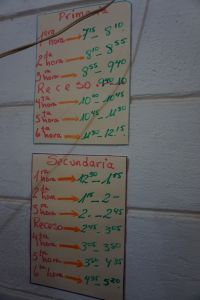 Primaria
1era hora → 7:15 - 8:10
2da hora → 8:10 - 8:55
3ra hora → 8:55 - 9:40
Receso 9:40 10
4ta hora → 10:00 - 10:45
5ta hora → 10:45 - 11:30
6ta hora → 11:30 - 12:15
Secundaria
1ra hora → 12:30 - 1:15
2da hora → 1:15 - 2
3ra hora → 2 - 2:45
Receso → 2:45 - 3:05
4ta hora → 3:05 - 3:50
5ta hora → 3:50 - 4:35
6ta hora → 4:35 - 5:20